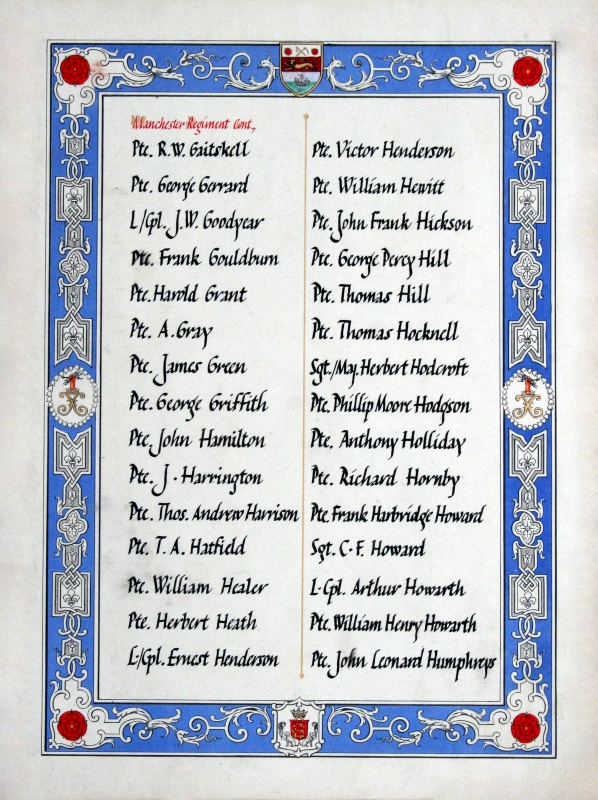 Manchester Regiment Cont.,
Pte. R.W. Gaitskell
Pte. George Gerrard
L/Cpl. J.W. Goodyear
Pte. Frank Gouldburn
Pte. Harold Grant
Pte. A. Gray
Pte. James Green
Pte. George Griffith
Pte. John Hamilton
Pte. J. Harrington
Pte. Thos. Andrew Harrison
Pte. T. A. Hatfield
Pte. William Healer
Pte. Herbert Heath
L/Cpl. Ernest Henderson
Pte. Victor Henderson
Pte. William Hewitt
Pte. John Frank Hickson
Pte. George Percy Hill
Pte. Thomas Hill
Pte. Thomas Hocknell
Sgt./Maj. Herbert Hodcroft
Pte. Phillip Moore Hodgson
Pte. Anthony Holliday
Pte. Richard Hornby
Pte. Frank Harbridge Howard
Sgt. C. F. Howard
L. Cpl. Arthur Howarth
Pte. William Henry Howarth
Pte. John Leonard Humphreys